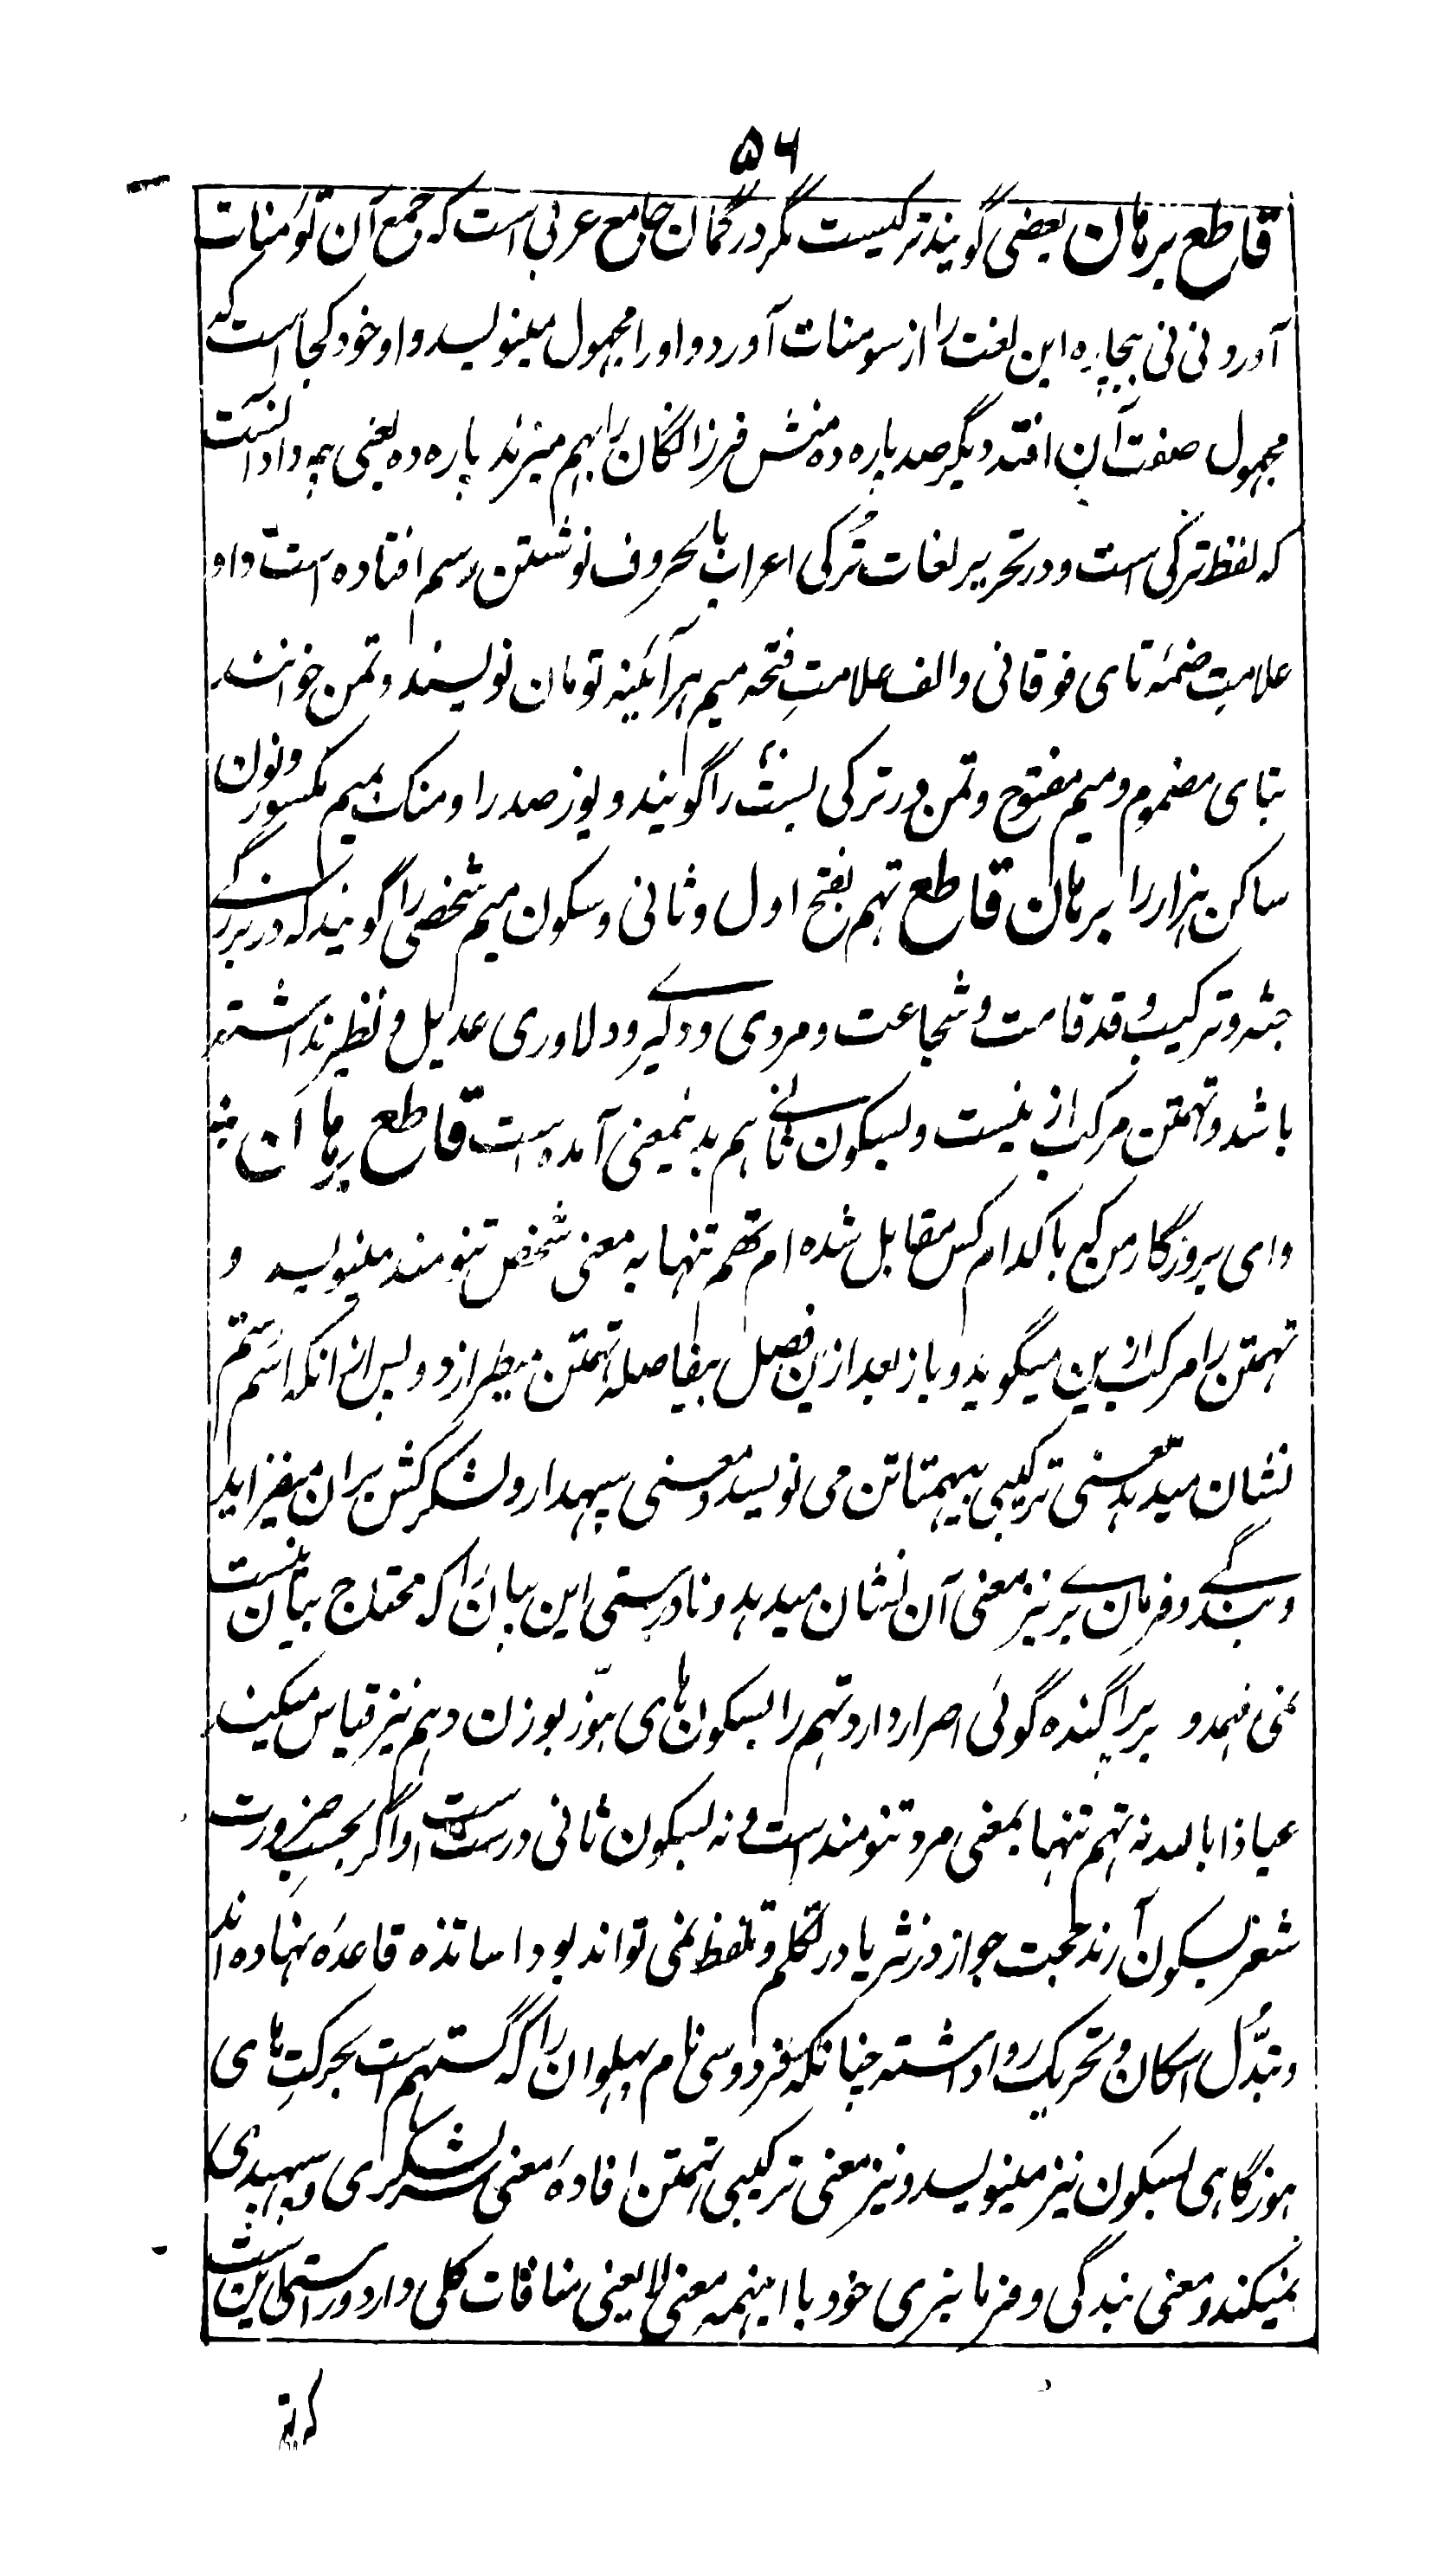 ۵۶
قاطع برهان بعضی گویند ترکیست مگر در گمان جامع عربی است که جمع آن تومنات
آورد نی نی بیچاره این لغت را از سومنات آورد و او را مجهول مینویسد و او خود کجا است که
مجهول صفت آن افتد دیگر صد پاره ده منش فرزانگان را بهم میزند پاره ده یعنی چه دانست
که لفظ ترکی است و در تحریر لغات ترکی اعراب بالحروف نوشتن رسم افتاده است واو
علامت ضمه تای فوقانی و الف علامتِ فتحه میم هر آئینه تومان نویسند و تمن خوانند
بتای مضموم و میم مفتوح و تمن در ترکی بست را گویند و یوز صد را و منک بمیم مکسور و نون
ساکن هزار را برهان قاطع تهم بفتح اول و ثانی و سکون میم شخصی را گویند که در بزرگی
جثه و ترکیب و قد قامت و شجاعت و مردی و دلیری و دلاوری عدیل و نظیر نداشته
باشد و تهمتن مرکب ازینست و بسکون ثانی هم بدینمعنی آمده است قاطع برهان
وای بروزگار من که با کدام کس مقابل شده ام تهم تنها به معنی شخص تنومند مینویسد و
تهمتن را مرکب ازین میگوید و باز بعد ازین فصل بیفاصله تهمتن میطرازد و پس از انکه اسم رستم
نشان میدهد معنی ترکیبی بیهمتا تن می نویسد و معنی سپهدار و لشکرکش بران میفزاید
و بندگی و فرمان بری نیز معنی آن نشان میدهد و نادرستی این بیان را که محتاج بیان نیست
نمی فهمد و بر پراگنده گوئی اصرار دارد و تهم را بسکون های هوّز بوزن وهم نیز قیاس میکند
عیاذا بالله نه تهم تنها بمعنی مرد تنومند است و نه بسکون ثانی درست است و اگر بحسب ضرورت
شعر بسکون آرند حجت جواز در نثر یا در تکلم و تلفظ نمی تواند بود اساتذه قاعده نهاده اند
و تبدّل اسکان و تحریک روا داشته چنانکه فردوسی نام پهلوان را که گستهم است بحرکتِ های
هوز گاهی بسکون نیز مینویسد و نیز معنی ترکیبی تهمتن افاده معنی لشکری و سپهبدی
نمیکند و معنی بندگی و فرمانبری خود با اینهمه معنی لا یعنی منافات کلی دارد و راستی این است
که تهم